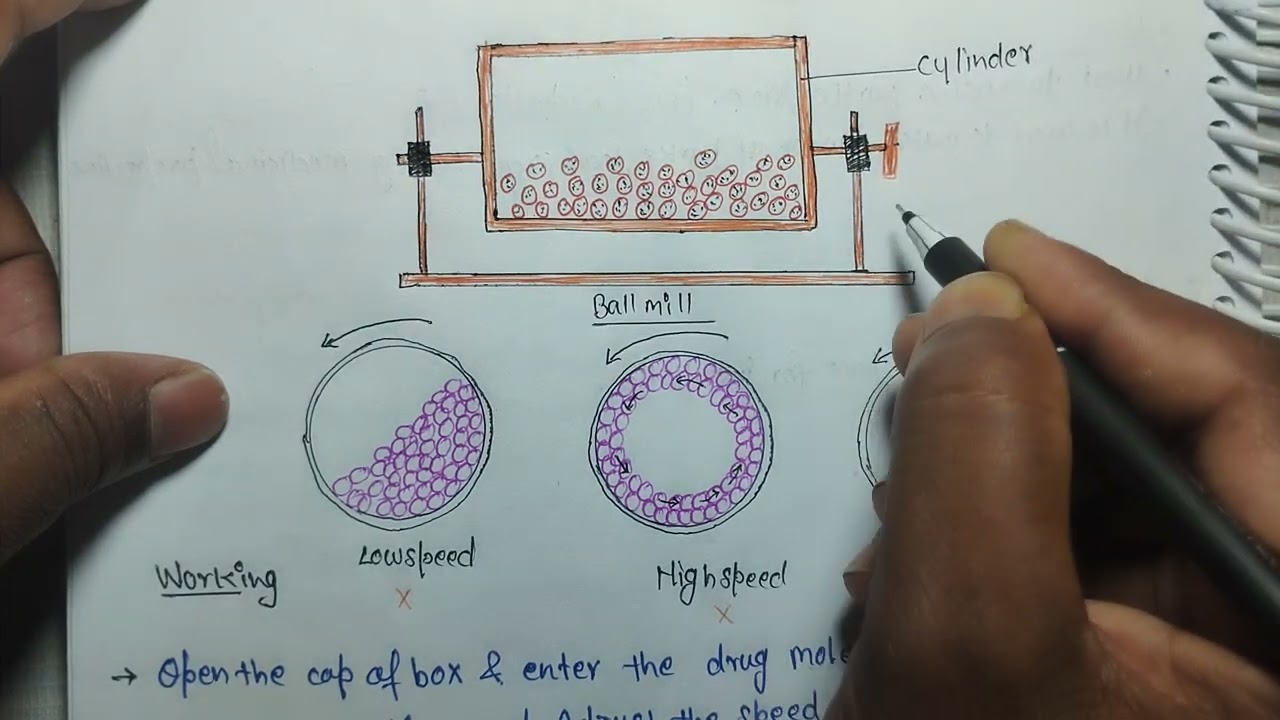 Cylinder
Ball mill
Low speed
High speed
X
X
Working
→ Open the cap of box & enter the drug
the speed